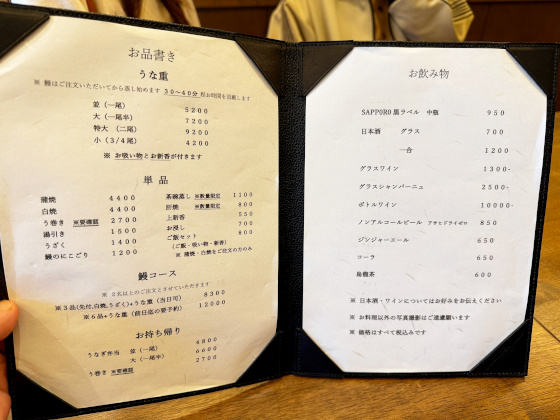 お品書き
うな重
※ 鰻はご注文いただいてから蒸し始めます 30～40分 程お時間を頂戴します
並（一尾） 5200
大（一尾半） 7200
特大（二尾） 9200
小（3/4尾） 4200
※ お吸い物とお新香が付きます
単品
蒲焼 4400
白焼 4400
う巻き ※要確認 2700
湯引き 1500
うざく 1400
鰻のにこごり 1200
茶碗蒸し ※数量限定 1100
肝焼 ※数量限定 800
上新香 550
お浸し 700
ご飯セット 800
（ご飯・吸い物・新香）
※ 蒲焼・白焼をご注文の方のみ
鰻コース
※ 2名以上のご注文とさせていただきます
※3品(先付,白焼,うざく)+うな重（当日可） 8300
※6品+うな重（前日迄の要予約） 12000
お持ち帰り
うなぎ弁当 並（一尾） 4800
大（一尾半） 6600
う巻き ※要確認 2700
お飲み物
SAPPORO黒ラベル 中瓶 950
日本酒 グラス 700
一合 1200
グラスワイン 1300-
グラスシャンパーニュ 2500-
ボトルワイン 10000-
ノンアルコールビール アサヒドライゼロ 850
ジンジャーエール 650
コーラ 650
烏龍茶 600
※ 日本酒・ワインについてはお好みをお伝えください
※ お料理以外の写真撮影はご遠慮願います
※ 価格はすべて税込みです